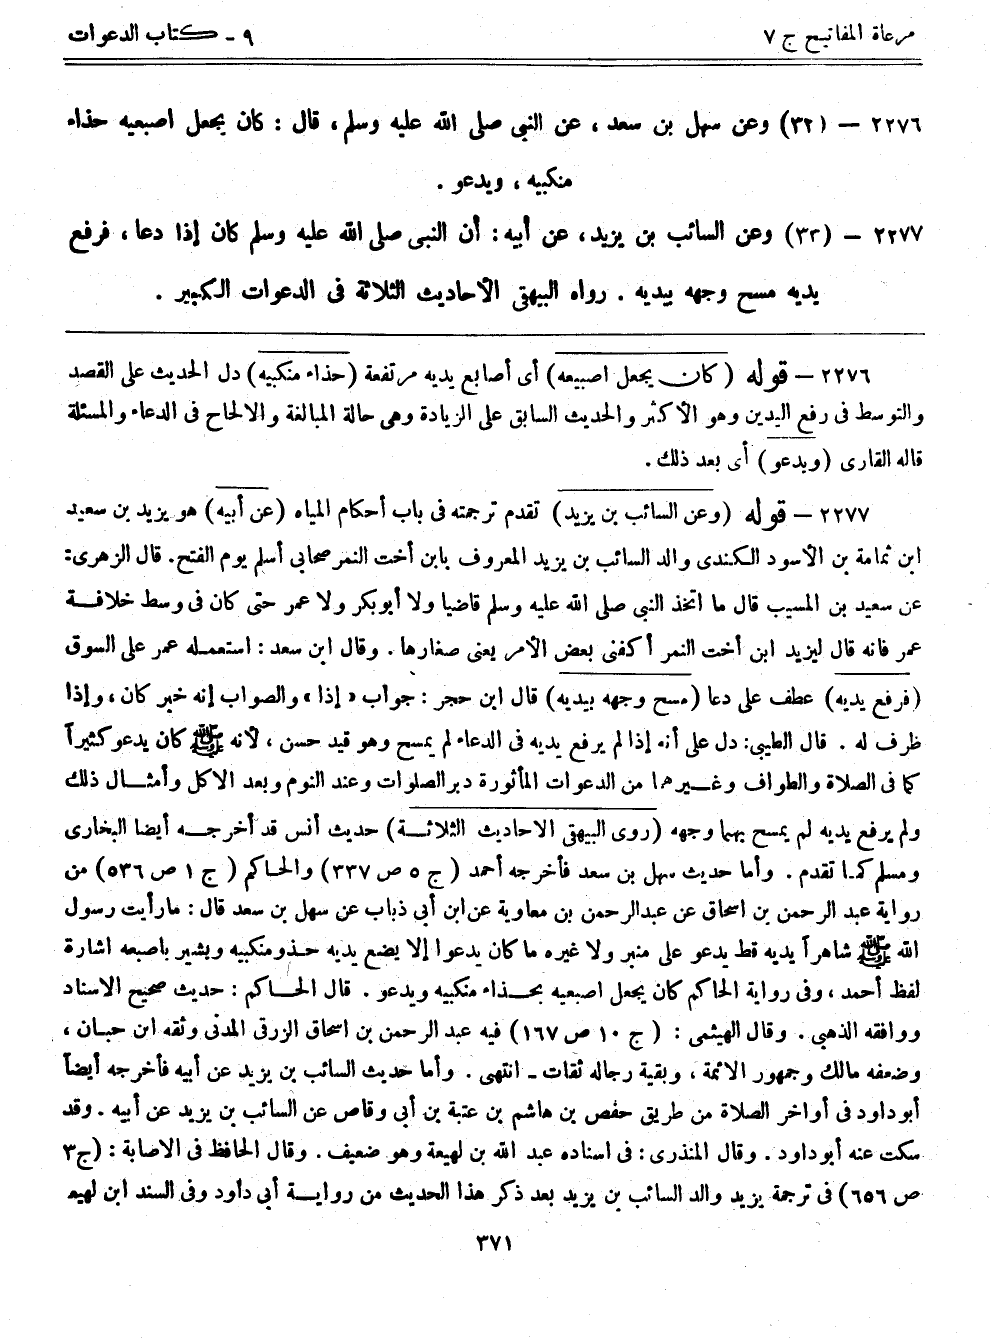 مرعاة المفاتيح ج ٧
٩ - كتاب الدعوات
٢٢٧٦ – (٣٢) وعن سهل بن سعد، عن النبى صلى الله عليه وسلم، قال: كان يجعل اصبعيه حذاء
منكبيه، ويدعو.
٢٢٧٧ – (٣٣) وعن السائب بن يزيد، عن أبيه: أن النبى صلى الله عليه وسلم كان إذا دعا، فرفع
يديه مسح وجهه بيديه. رواه البيهقى الأحاديث الثلاثة فى الدعوات الكبير.
٢٢٧٦ – قوله (كان يجعل اصبعيه) أى أصابع يديه مرتفعة (حذاء منكبيه) دل الحديث على القصد
والتوسط فى رفع اليدين وهو الأكثر والحديث السابق على الزيادة وهى حالة المبالغة والالحاح فى الدعاء والمسئلة
قاله القارى (ويدعو) أى بعد ذلك.
٢٢٧٧ – قوله (وعن السائب بن يزيد) تقدم ترجمته فى باب أحكام المياه (عن أبيه) هو يزيد بن سعيد
ابن ثمامة بن الأسود الكندى والد السائب بن يزيد المعروف بابن أخت النمر صحابى أسلم يوم الفتح. قال الزهرى:
عن سعيد بن المسيب قال ما اتخذ النبى صلى الله عليه وسلم قاضيا ولا أبوبكر ولا عمر حتى كان فى وسط خلافة
عمر فانه قال ليزيد ابن أخت النمر أكفنى بعض الأمر يعنى صغارها. وقال ابن سعد: استعمله عمر على السوق
(فرفع يديه) عطف على دعا (مسح وجهه بيديه) قال ابن حجر: جواب «إذا» والصواب إنه خبر كان، وإذا
ظرف له. قال الطيبى: دل على أنه إذا لم يرفع يديه فى الدعاء لم يمسح وهو قيد حسن، لأنه ﷺ كان يدعو كثيراً
كما فى الصلاة والطواف وغيرهما من الدعوات المأثورة دبر الصلوات وعند النوم وبعد الاكل وأمثال ذلك
ولم يرفع يديه لم يمسح بهما وجهه (روى البيهقى الاحاديث الثلاثة) حديث أنس قد أخرجه أيضا البخارى
ومسلم كما تقدم. وأما حديث سهل بن سعد فأخرجه أحمد (ج ٥ ص ٣٣٧) والحاكم (ج ١ ص ٥٣٦) من
رواية عبد الرحمن بن اسحاق عن عبدالرحمن بن معاوية عن ابن أبى ذباب عن سهل بن سعد قال: مارأيت رسول
الله ﷺ شاهراً يديه قط يدعو على منبر ولا غيره ما كان يدعوا إلا يضع يديه حذو منكبيه ويشير باصبعه اشارة
لفظ أحمد، وفى رواية الحاكم كان يجعل اصبعيه بحذاء منكبيه ويدعو. قال الحاكم: حديث صحيح الاسناد
ووافقه الذهبى. وقال الهيثمى: (ج ١٠ ص ١٦٧) فيه عبد الرحمن بن اسحاق الزرقى المدنى وثقه ابن حبان،
وضعفه مالك وجمهور الائمة، وبقية رجاله ثقات - انتهى. وأما حديث السائب بن يزيد عن أبيه فأخرجه أيضاً
أبوداود فى أواخر الصلاة من طريق حفص بن هاشم بن عتبة بن أبى وقاص عن السائب بن يزيد عن أبيه. وقد
سكت عنه أبوداود. وقال المنذرى: فى اسناده عبد الله بن لهيعة وهو ضعيف. وقال الحافظ فى الاصابة: (ج٣
ص ٦٥٦) فى ترجمة يزيد والد السائب بن يزيد بعد ذكر هذا الحديث من رواية أبى داود وفى السند ابن لهيعـ
٣٧١